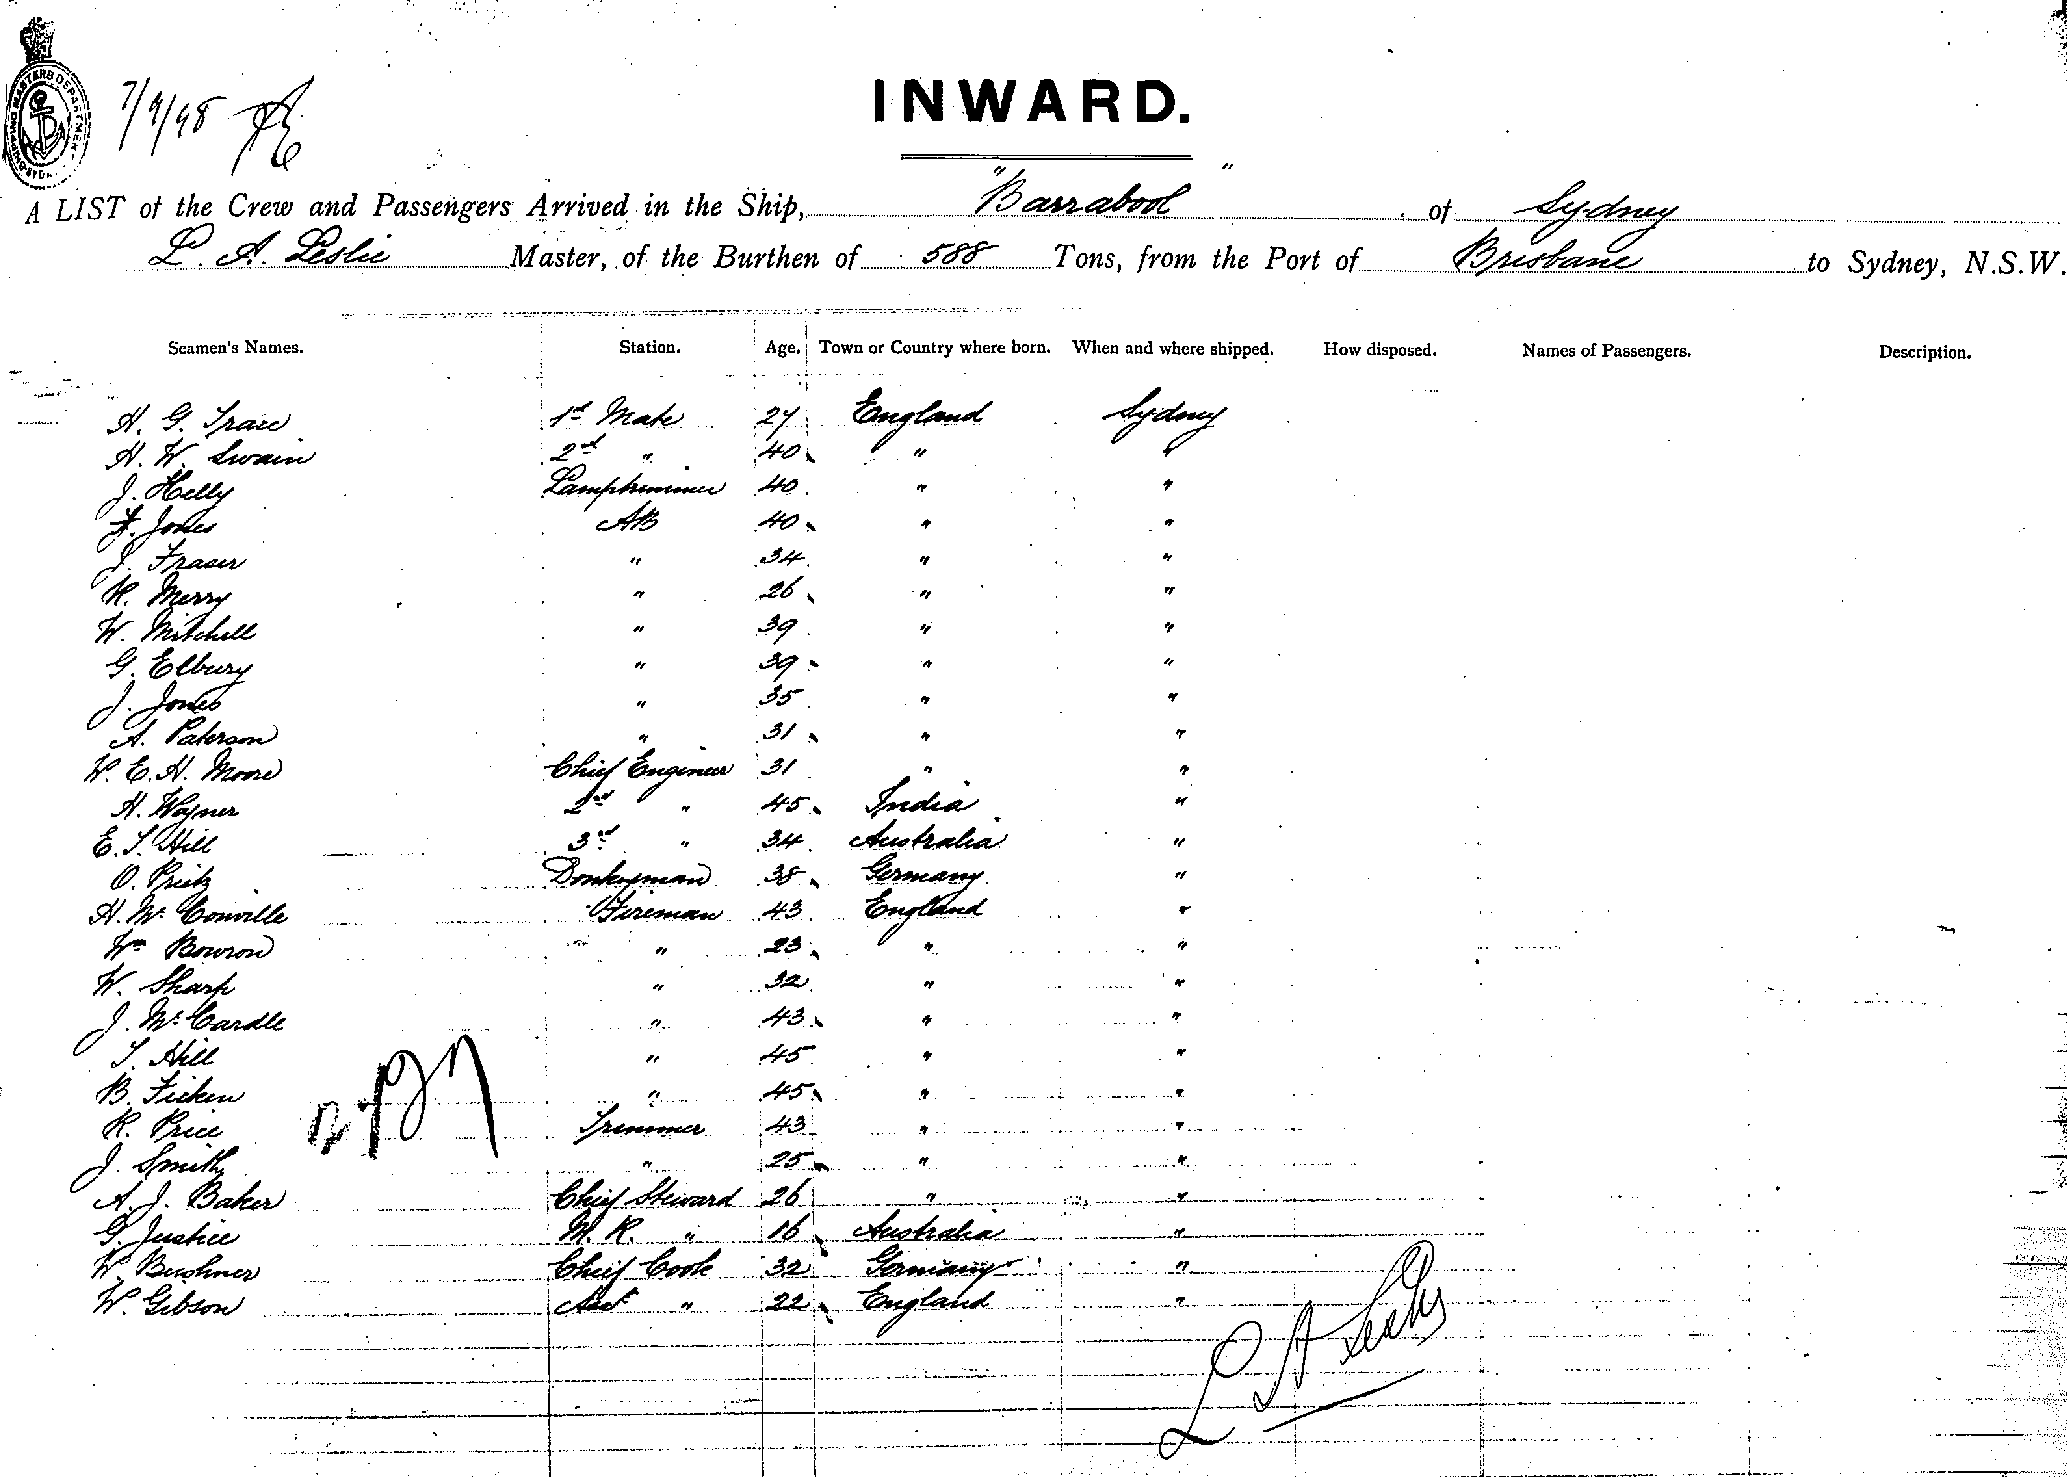 7/9/98
INWARD.
A LIST of the Crew and Passengers Arrived in the Ship, "Barrabool" of Sydney
L. A. Leslie Master, of the Burthen of 588 Tons, from the Port of Brisbane to Sydney, N.S.W.
Seamen's Names. Station. Age. Town or Country where born. When and where shipped. How disposed. Names of Passengers. Description.
H. G. 1st Mate 27 England Sydney
H. W. Swain 2nd " 40 " "
J. Helly Lamptrimmer 40 " "
F. Jones AB 40 " "
J. Fraser " 34 " "
R. Merry " 26 " "
W. Mitchell " 39 " "
G. Elbury " 39 " "
J. Jones " 35 " "
A. Paterson " 31 " "
W. E. H. Moore Chief Engineer 31 " "
H. Wayner 2nd " 45 India "
E. S. Hill 3rd " 34 Australia "
O. Prietz Donkeyman 38 Germany "
H. McConville Fireman 43 England "
Wm Bowron " 23 " "
W. Sharp " 32 " "
J. McCardle " 43 " "
T. Hill " 45 " "
B. Ficken " 45 " "
R. Price Trimmer 43 " "
J. Smith " 25 " "
A. J. Baker Chief Steward 26 " "
G. Justice M. R. " 16 Australia "
W. Bushner Chief Cook 32 Germany "
W. Gibson Asst " 22 England "
L A Leslie